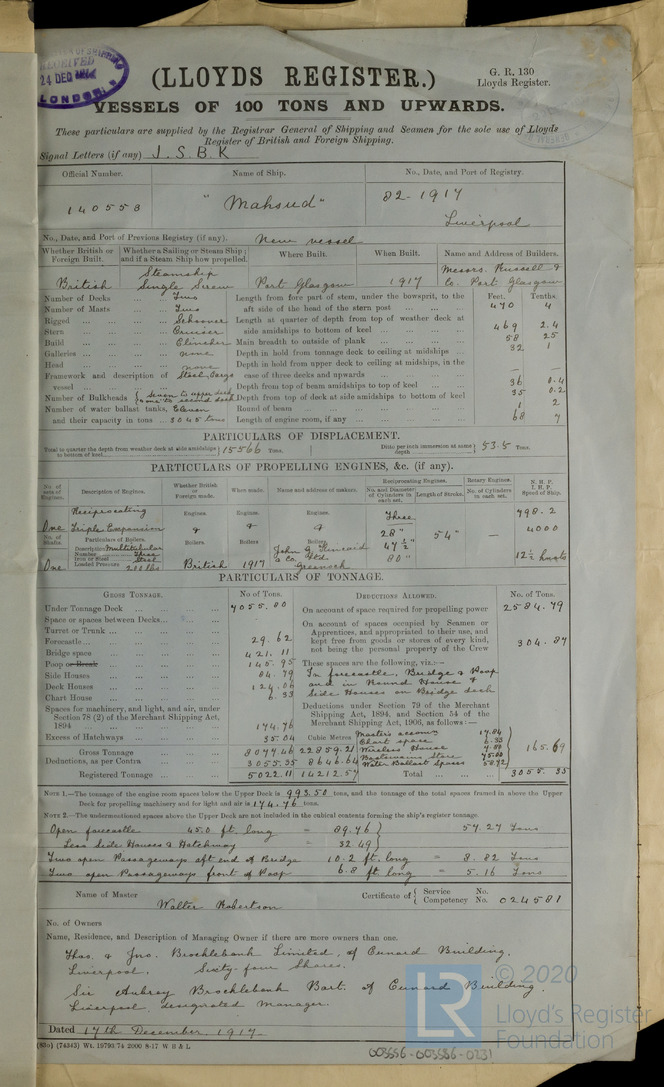 REGISTER OF SHIPPING
RECEIVED
24 DEC 1917
LONDON
(LLOYDS REGISTER.)
G. R. 130
Lloyds Register.
VESSELS OF 100 TONS AND UPWARDS.
These particulars are supplied by the Registrar General of Shipping and Seamen for the sole use of Lloyds
Register of British and Foreign Shipping.
Signal Letters (if any) J. S. B. K
Official Number. Name of Ship. No., Date, and Port of Registry.
140558 "Mahsud" 82 - 1917
Liverpool
No., Date, and Port of Previous Registry (if any). New vessel
Whether British or Foreign Built. Whether a Sailing or Steam Ship; and if a Steam Ship how propelled. Where Built. When Built. Name and Address of Builders.
British Steamship Single Screw Port Glasgow 1917 Messrs. Russell & Co. Port Glasgow
Number of Decks ... Two
Number of Masts ... Two
Rigged ... Schooner
Stern ... Cruiser
Build ... Clincher
Galleries ... none
Head ... none
Framework and description of vessel ... Steel, Cargo
Number of Bulkheads { Seven to upper deck one to second deck
Number of water ballast tanks, Eleven
and their capacity in tons ... 3045 tons
Feet. Tenths.
Length from fore part of stem, under the bowsprit, to the
aft side of the head of the stern post ... 470 4
Length at quarter of depth from top of weather deck at
side amidships to bottom of keel ... 469 2.4
Main breadth to outside of plank ... 58 25
Depth in hold from tonnage deck to ceiling at midships ... 32 1
Depth in hold from upper deck to ceiling at midships, in the
case of three decks and upwards ... — —
Depth from top of beam amidships to top of keel ... 36 0.4
Depth from top of deck at side amidships to bottom of keel 35 0.2
Round of beam ... 1 2
Length of engine room, if any ... 68 7
PARTICULARS OF DISPLACEMENT.
Total to quarter the depth from weather deck at side amidships to bottom of keel 15566 Tons. Ditto per inch immersion at same depth 53.5 Tons.
PARTICULARS OF PROPELLING ENGINES, &c. (if any).
No. of sets of Engines. Description of Engines. Whether British or Foreign made. When made. Name and address of makers. Reciprocating Engines. Rotary Engines. N. H. P. I. H. P. Speed of Ship.
No. and Diameter of Cylinders in each set. Length of Stroke. No. of Cylinders in each set.
One Reciprocating Triple Expansion
Engines. Engines. Engines.
Three 28" 47½" 80" 54" — 798.2 4000 12½ knots
No. of Shafts. One
Particulars of Boilers.
Description Multitubular
Number Three
Iron or Steel Steel
Loaded Pressure 200 lbs
Boilers. Boilers. Boilers.
British 1917 John G. Kincaid & Co. Ltd. Greenock
PARTICULARS OF TONNAGE.
GROSS TONNAGE. No of Tons.
Under Tonnage Deck ... 7055.80
Space or spaces between Decks...
Turret or Trunk ...
Forecastle... 29.62
Bridge space ... 421.11
Poop or Break ... 145.95
Side Houses ... 84.79
Deck Houses ... 124.06
Chart House ... 6.33
Spaces for machinery, and light, and air, under
Section 78 (2) of the Merchant Shipping Act,
1894 ... 174.76
Excess of Hatchways ... 35.04 Cubic Metres
Gross Tonnage ... 8077.46 22859.21
Deductions, as per Contra ... 3055.35 8646.64
Registered Tonnage ... 5022.11 14212.57
DEDUCTIONS ALLOWED. No. of Tons.
On account of space required for propelling power 2584.79
On account of spaces occupied by Seamen or
Apprentices, and appropriated to their use, and
kept free from goods or stores of every kind,
not being the personal property of the Crew 304.87
These spaces are the following, viz.:—
In forecastle, Bridge & Poop
and in Round House &
Side Houses on Bridge deck
Deductions under Section 79 of the Merchant
Shipping Act, 1894, and Section 54 of the
Merchant Shipping Act, 1906, as follows:—
Master's accomn 17.84
Chart space 6.33
Wireless House 7.88
Boatswains Store 75.00
Water Ballast Spaces 58.72
} 165.69
Total ... 3055.35
NOTE 1.—The tonnage of the engine room spaces below the Upper Deck is 993.50 tons, and the tonnage of the total spaces framed in above the Upper
Deck for propelling machinery and for light and air is 174.76 tons.
NOTE 2.—The undermentioned spaces above the Upper Deck are not included in the cubical contents forming the ship's register tonnage.
Open forecastle 45.0 ft. long = 89.76 } 57.27 Tons
Less Side Houses & Hatchway = 32.49 }
Two open Passageways aft end of Bridge 10.2 ft. long = 8.82 Tons
Two open Passageways front of Poop 6.8 ft long = 5.16 Tons
Name of Master Walter Robertson
Certificate of { Service No.
Competency No. 024581
No. of Owners
Name, Residence, and Description of Managing Owner if there are more owners than one.
Thos. & Jno. Brocklebank Limited, of Cunard Building,
Liverpool. Sixty-four Shares.
Sir Aubrey Brocklebank Bart. of Cunard Building,
Liverpool, designated Manager.
Dated 17th December 1917
(83o) (74343) Wt. 19793/74 2000 8-17 W B & L
003556-003556-0231
LR
© 2020
Lloyd's Register
Foundation